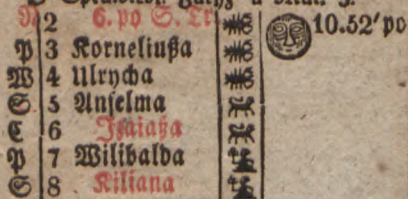 N 2 6. po S. Tr 10.52' po
P 3 Korneliußa
W 4 Ulrycha
S 5 Anselma
C 6 Izaiaßa
P 7 Wilibalda
S 8 Kiliana